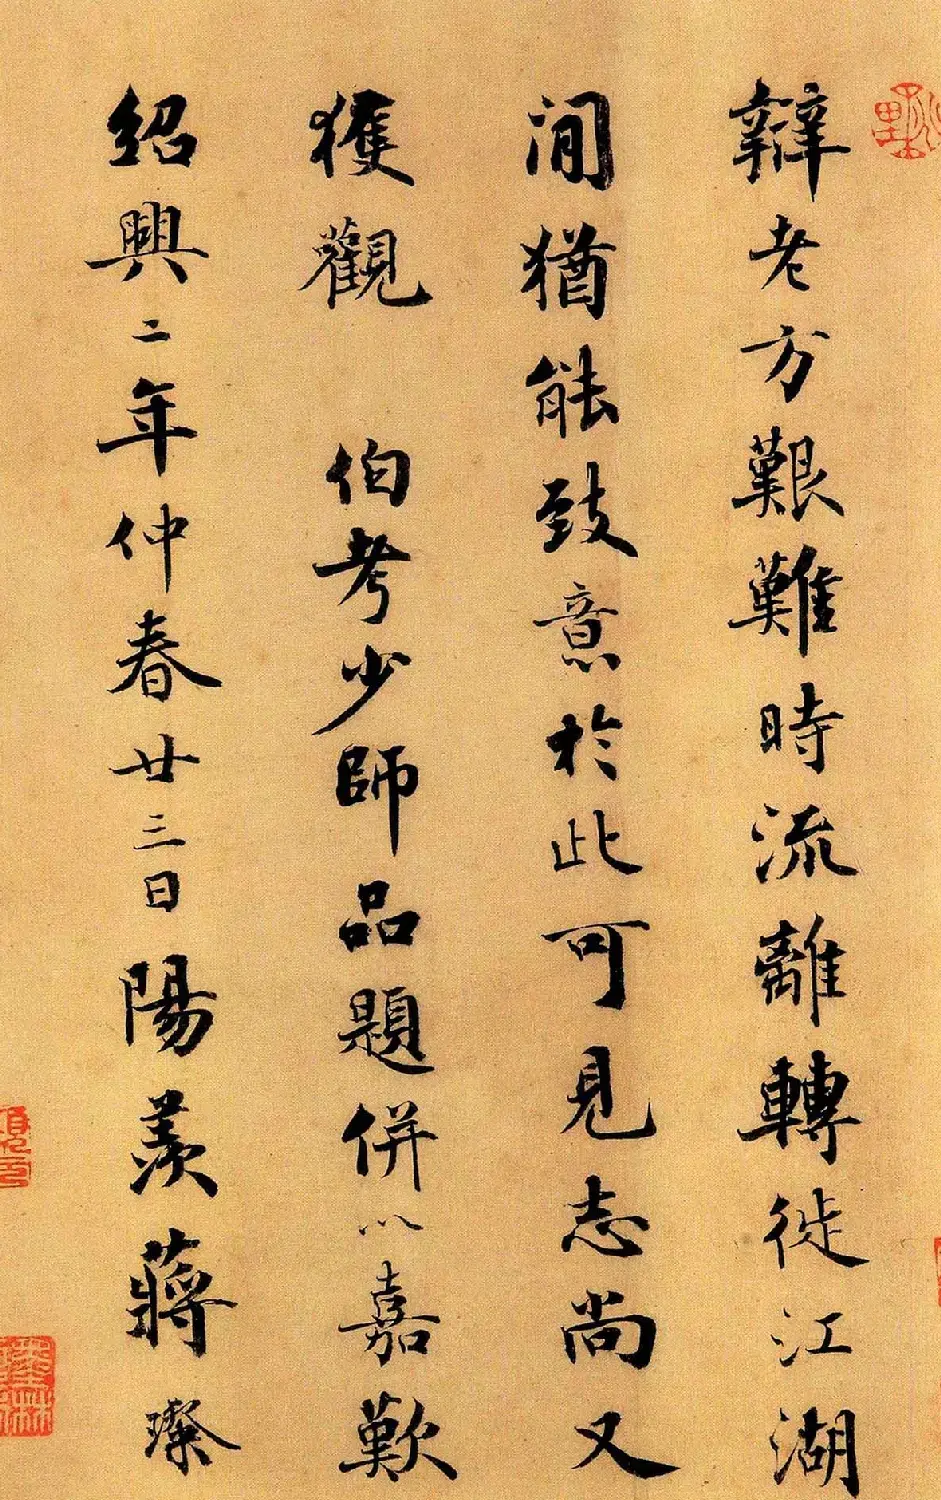 辯老方艱難時流離轉徙江湖
間猶能致意於此可見志尚又
獲觀 伯考少師品題併以嘉歎
紹興二年仲春廿三日陽羨蔣璨